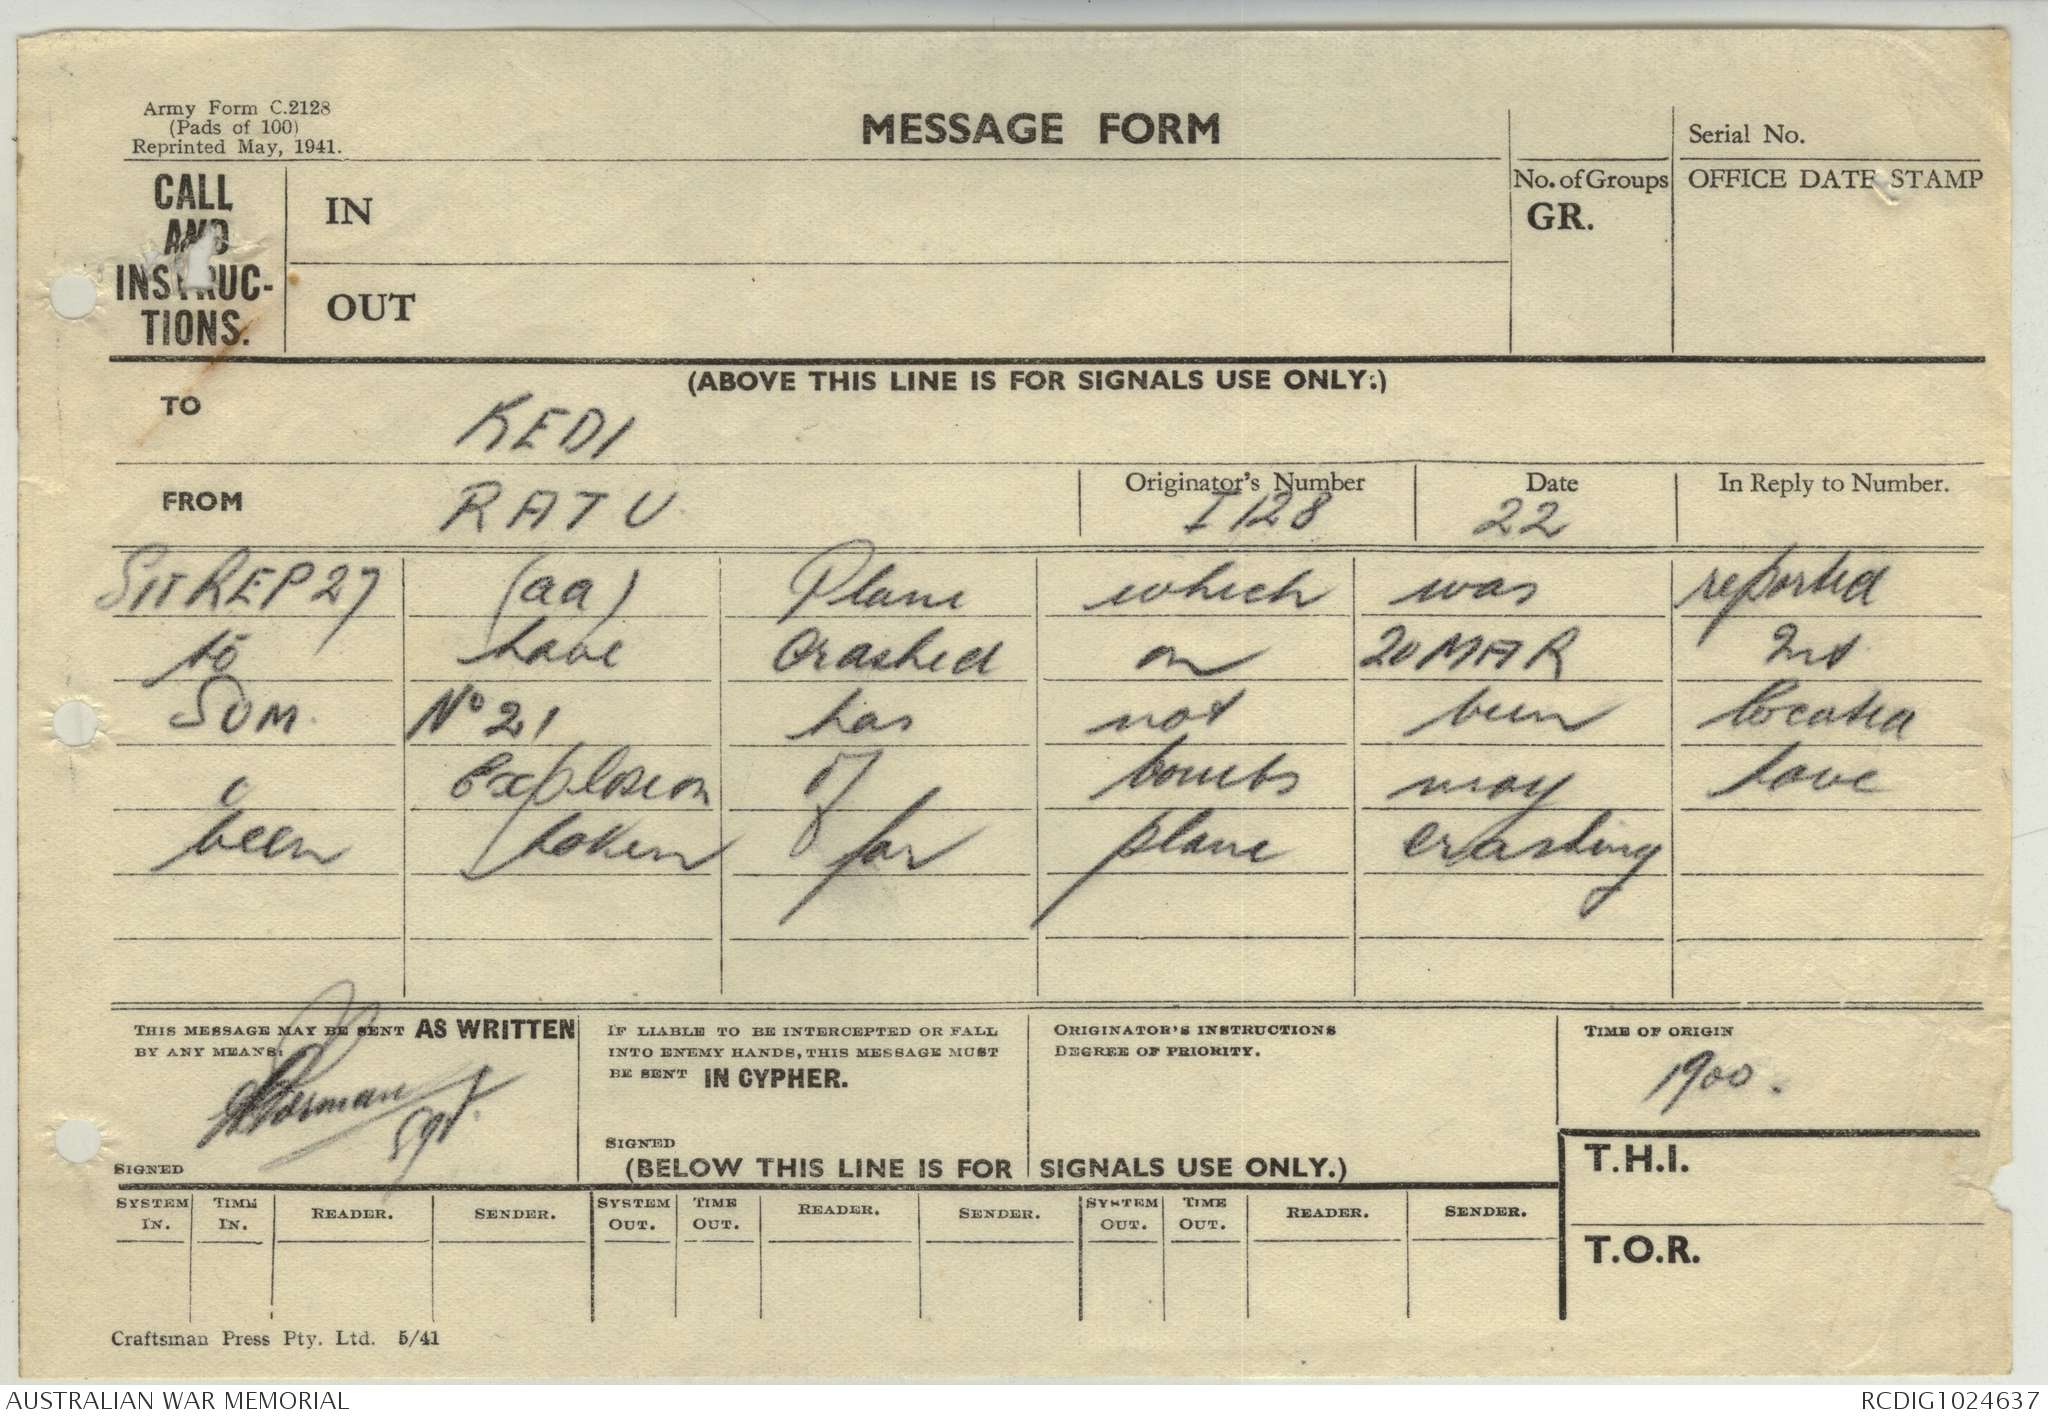 Army Form C.2128
(Pads of 100)
Reprinted May, 1941.
MESSAGE FORM
Serial No.
CALL AND INSTRUC-TIONS.
IN
No. of Groups
GR.
OFFICE DATE STAMP
OUT
(ABOVE THIS LINE IS FOR SIGNALS USE ONLY.)
TO KEDI
FROM RATU
Originator's Number I128
Date 22
In Reply to Number.
SITREP 27 (aa) Plane which was reported
to have crashed on 20 MAR
SUM. No 21 has not been located
explosion of bombs may have
been taken for plane crashing
THIS MESSAGE MAY BE SENT AS WRITTEN
BY ANY MEANS.
Sgt.
SIGNED
IF LIABLE TO BE INTERCEPTED OR FALL
INTO ENEMY HANDS, THIS MESSAGE MUST
BE SENT IN CYPHER.
SIGNED
ORIGINATOR'S INSTRUCTIONS
DEGREE OF PRIORITY.
TIME OF ORIGIN
1900.
(BELOW THIS LINE IS FOR SIGNALS USE ONLY.)
T.H.I.
SYSTEM IN. TIME IN. READER. SENDER. SYSTEM OUT. TIME OUT. READER. SENDER. SYSTEM OUT. TIME OUT. READER. SENDER.
T.O.R.
Craftsman Press Pty. Ltd. 5/41
AUSTRALIAN WAR MEMORIAL
RCDIG1024637